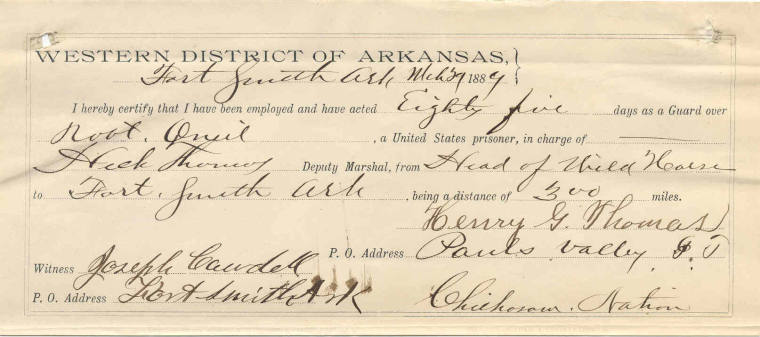 WESTERN DISTRICT OF ARKANSAS,
Fort Smith Ark Mch 29 1889
I hereby certify that I have been employed and have acted Eighty five days as a Guard over
Robt. Oneil, a United States prisoner, in charge of
Heck Thomas Deputy Marshal, from Head of Wild Horse
to Fort Smith Ark, being a distance of 300 miles.
Henry G. Thomas
P. O. Address Pauls Valley I. T
Witness Joseph Caudell
P. O. Address Fort Smith Ark Chichasaw Nation